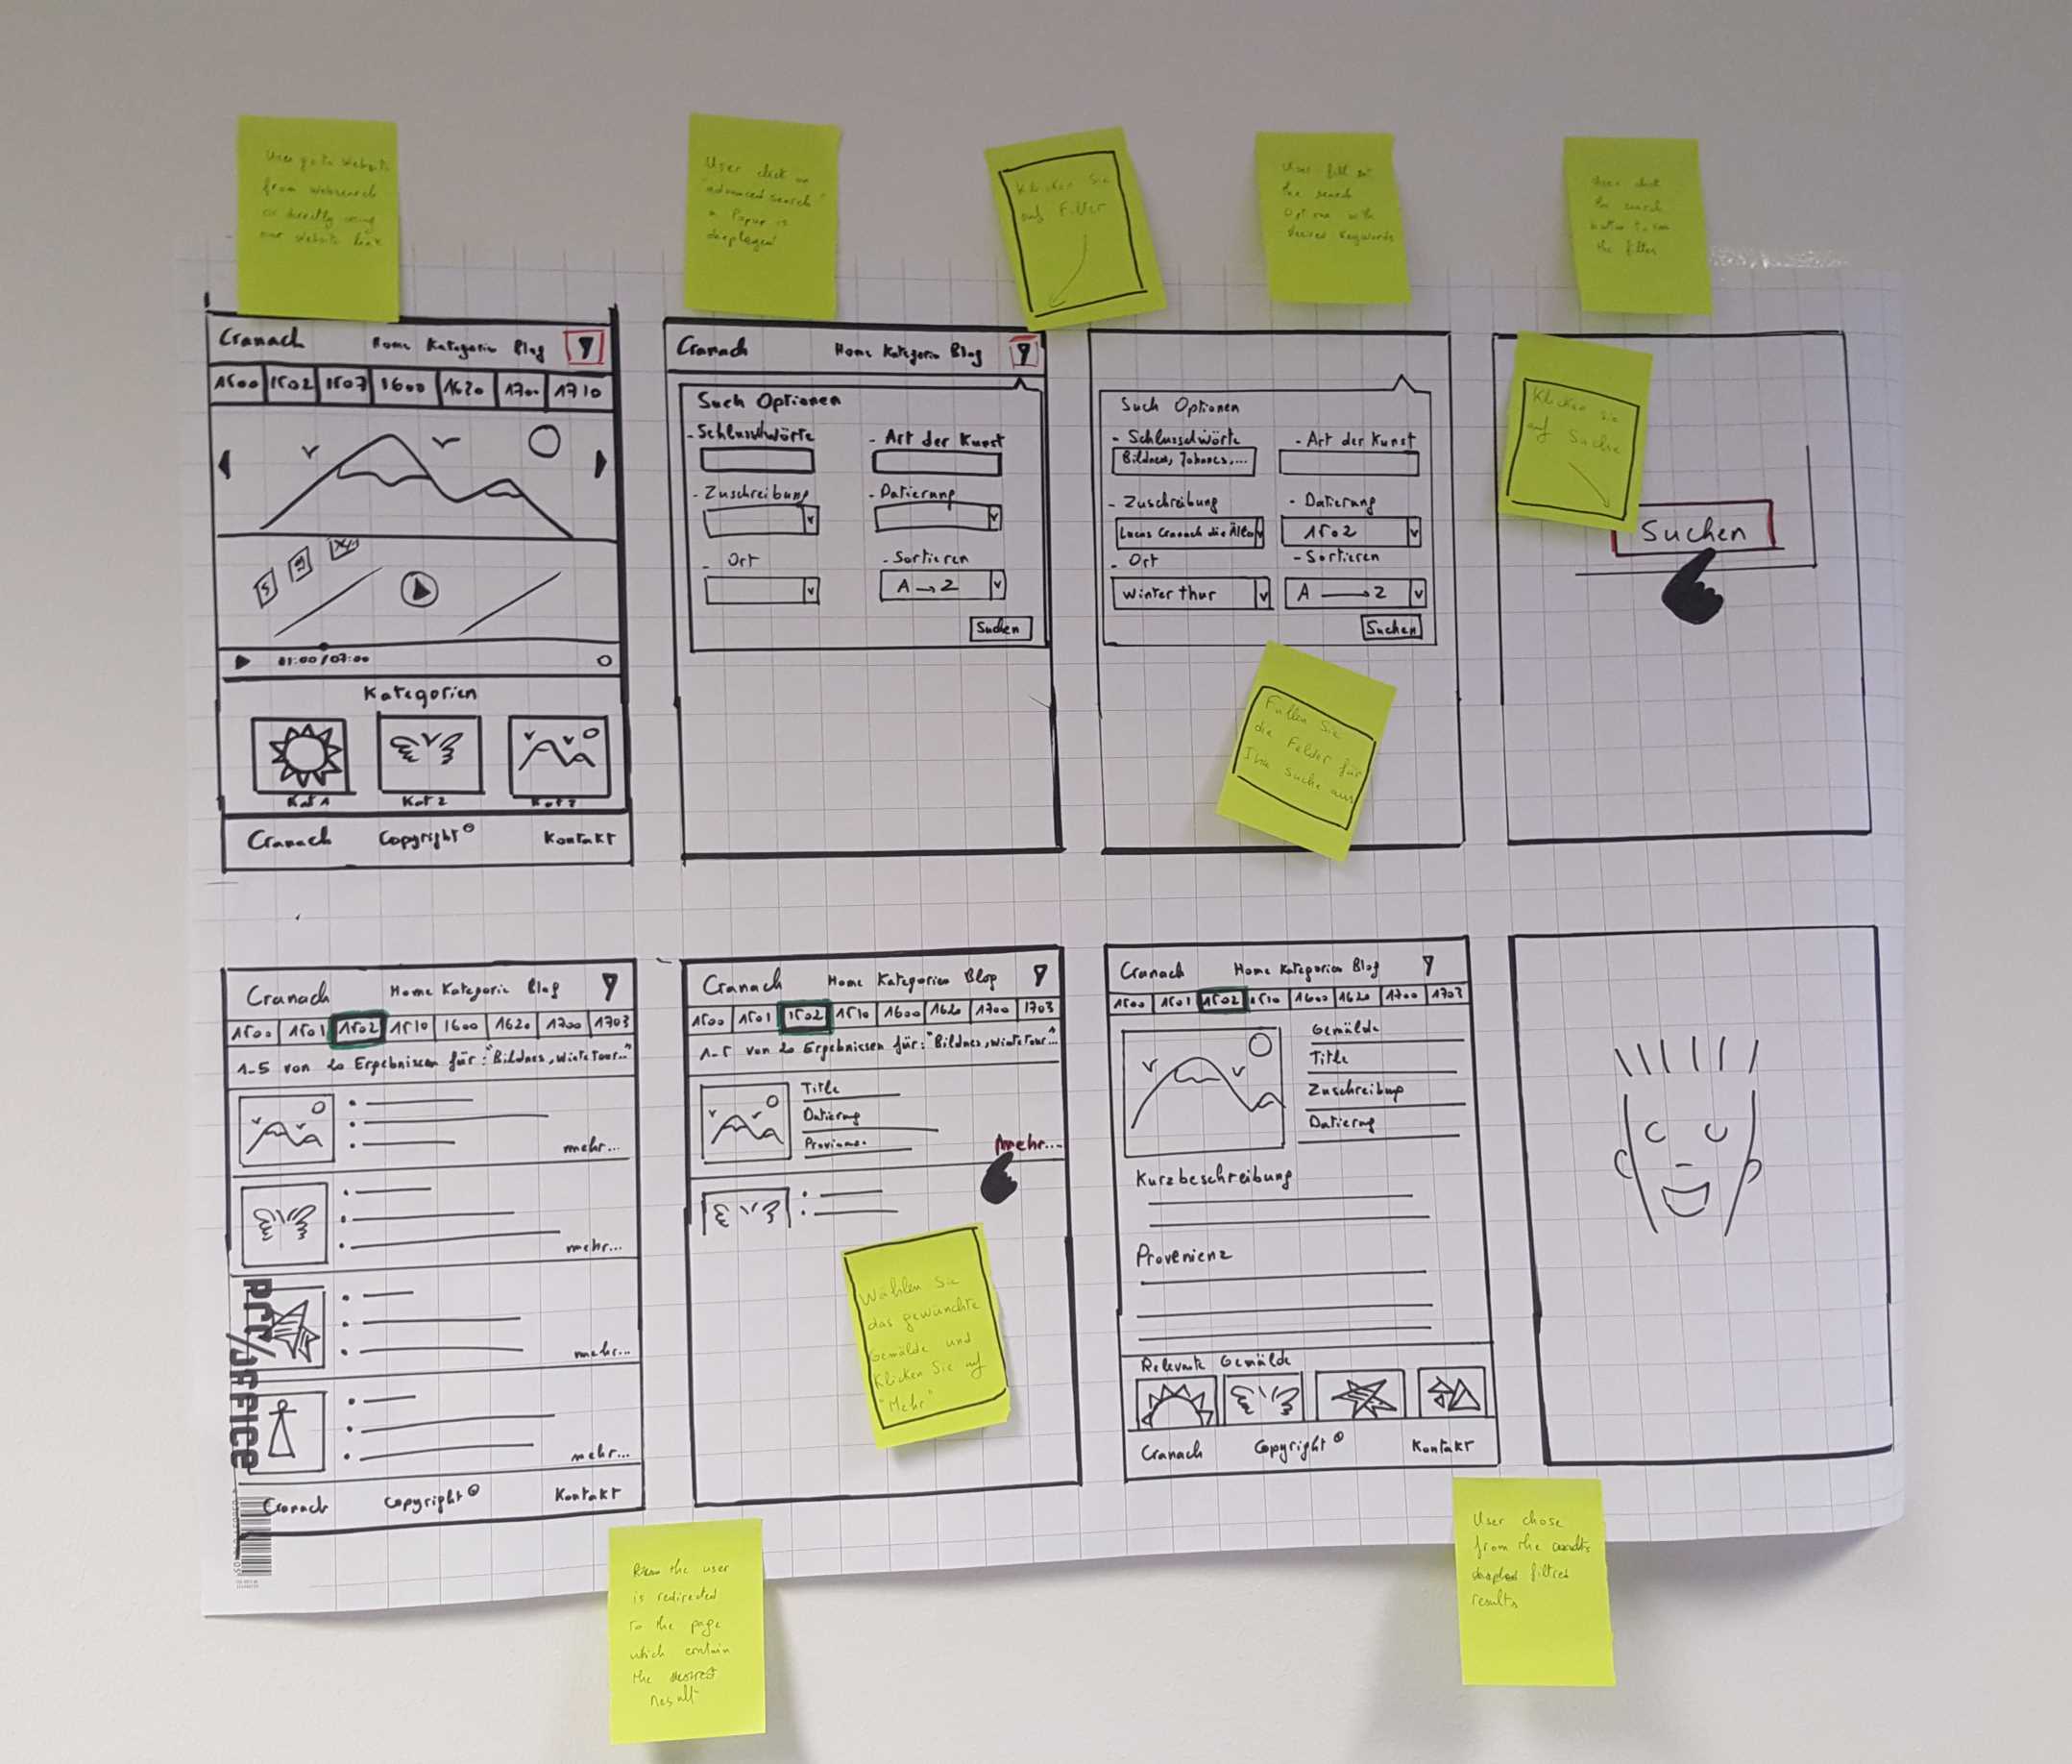 User go to website
from websearch
or directly using
our website link
User click on
"advanced search"
a Popup is
displayed
Klicken Sie
auf Filter
User fill out
the search
Option with
desired Keywords
User click
the search
button to run
the filter
Cranach Home Kategorie Blog
1500 1502 1507 1600 1620 1700 1710
01:00/07:00
Kategorien
Kat 1 Kat 2 Kat 3
Cranach Copyright© Kontakt
Cranach Home Kategorie Blog
Such Optionen
- Schlusselwörte - Art der Kunst
- Zuschreibung - Datierung
- Ort - Sortieren
A → Z
Suchen
Such Optionen
- Schlusselwörte - Art der Kunst
Bildnes, Johanes,...
- Zuschreibung - Datierung
Lucas Cranach die Älter 1502
- Ort - Sortieren
Winterthur A → Z
Suchen
Füllen Sie
die Felder für
Ihre Suche aus
Klicken Sie
auf Suche
Suchen
Cranach Home Kategorie Blog
1500 1501 1502 1510 1600 1620 1700 1703
1-5 von 20 Ergebnissen für: "Bildnes, Wintetour..."
mehr...
mehr...
mehr...
mehr...
Cranach Copyright© Kontakt
Pro/office
Cranach Home Kategorien Blog
1500 1501 1502 1510 1600 1620 1700 1703
1-5 von 20 Ergebnissen für: "Bildnes, Wintetour..."
Title
Datierung
mehr...
Wählen Sie
das gewünchte
Gemälde und
Klicken Sie auf
"Mehr"
Cranach Home Kategorien Blog
1500 1501 1502 1510 1600 1620 1700 1703
Gemälde
Title
Zuschreibung
Datierung
Kurzbeschreibung
Provenienz
Relevante Gemälde
Cranach Copyright© Kontakt
the user
is redirected
to the page
which contain
the desired
result
User chose
from the
filtred
results